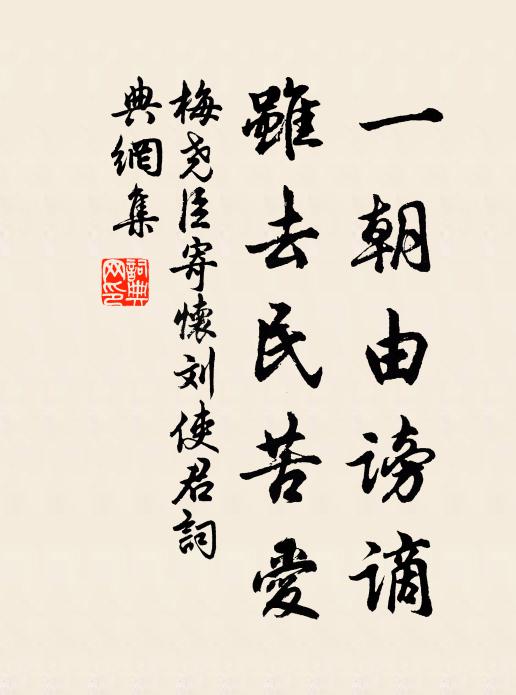 一朝由谤谪
雖去民苦愛
梅尧臣寄懷刘使君詞
典網集
詞典网印